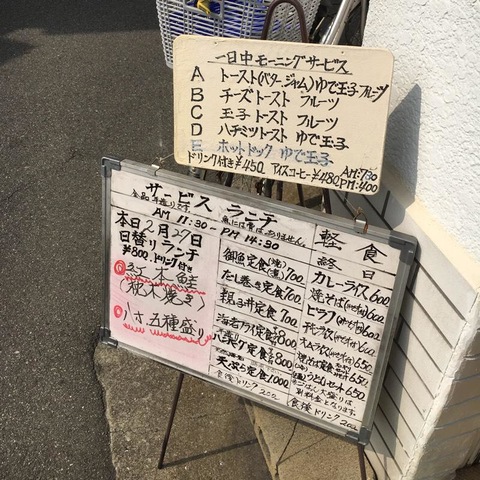 一日中モーニングサービス
A トースト(バター.ジャム)ゆで玉子 フルーツ
B チーズトースト フルーツ
C 玉子トースト フルーツ
D ハチミツトースト ゆで玉子
E ホットドック ゆで玉子
ドリンク付き¥450 アイスコーヒー¥480
AM:7:30
PM:4:00
サービス ランチ
AM 11:30~PM 14:30
本日2月27日
日替りランチ
¥800 ドリンク付き
紅本鮭
五種盛り
だし巻き定食 700
親子丼定食 700
海老フライ定食 800
天ぷら定食 1000
食後ドリンク200
軽食
終日
カレーライス 600
焼そば 600
ピラフ 600
オムライス 650
焼そば定食 650
うどんセット 650
大盛りは
別料金となります。
食後ドリンク200